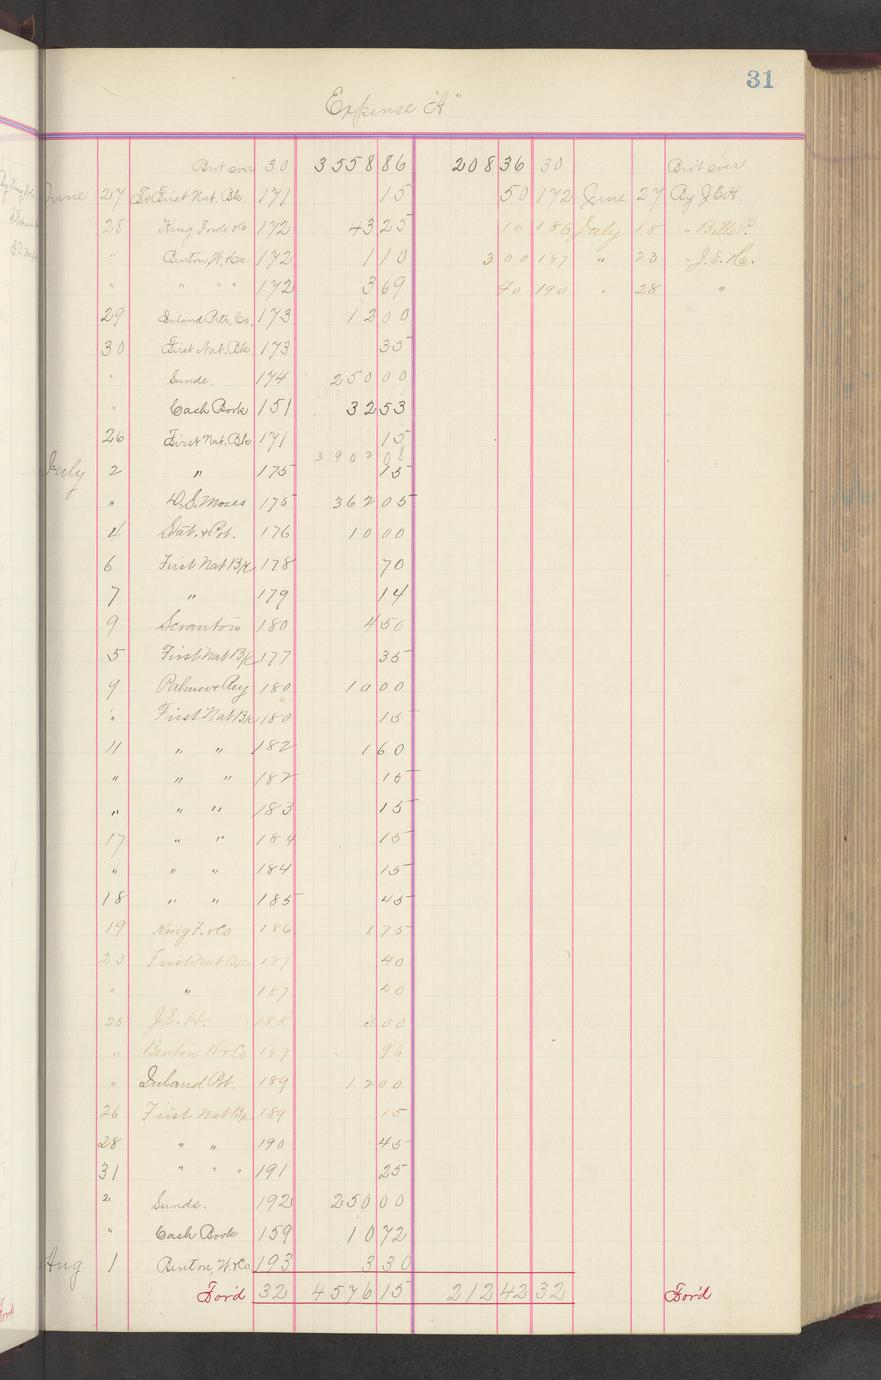 31
Expense "A"
Bro't over 30 3558 86 208 36 30 Bro't over
June 27 To First Nat. Bk. 171 15 50 172 June 27 By J.E.H.
28 King Fowle & Co 172 43 25 16 186 July 18 " Bills P.
" Benton, W. & Co. 172 1 10 3 00 187 " 23 " J.E.H.
" " " " 172 3 69 40 190 " 28 "
29 Inland Ptr. Co. 173 12 00
30 First Nat. Bk 173 35
" Sunds. 174 250 00
" Cash Book 151 32 53
26 First Nat. Bk 171 15
3902 08
July 2 " 175 15
" W.S. Moses 175 362 05
4 Stat. & Pt. 176 10 00
6 First Nat B/k 178 70
7 " 179 14
9 Scranton 180 4 50
5 First Nat B/k 177 35
9 Palmer & Rey 180 10 00
" First Nat B/k 180 15
11 " " 182 1 60
" " " 182 15
" " " 183 15
17 " " 184 15
" " " 184 15
18 " " 185 45
19 King F. & Co 186 1 75
23 First Nat B/k 187 40
" " 187 40
25 J.E.H. 188 3 00
" Benton W & Co 189 96
" Inland Pt. 189 12 00
26 First Nat B/k 189 15
28 " " 190 45
31 " " " 191 25
" Sunds. 192 250 00
" Cash Book 159 10 72
Aug 1 Benton, W. & Co 193 3 30
For'd 32 4576 15 212 42 32 For'd